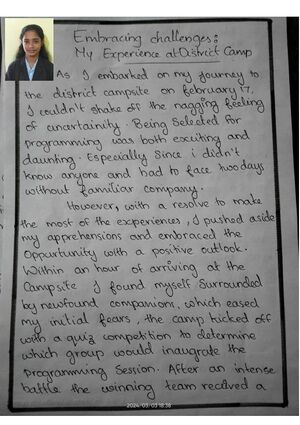 Embracing challenges:
My Experience at District Camp
As I embarked on my journey to
the district campsite on february 17,
I couldn't shake off the nagging feeling
of uncertainity. Being Selected for
programming was both exciting and
daunting. Especially Since i didn't
know anyone and had to face two days
without familiar company.
However, with a resolve to make
the most of the experiences, I pushed aside
my apprehensions and embraced the
Oppurtunity with a positive outlook.
Within an hour of arriving at the
Campsite I found myself Surrounded
by newfound companions, which eased
my initial fears, the camp kicked off
with a quiz competition to determine
which group would inaugrate the
programming Session. After an intense
battle the winning team received a
2024-03-03 18:38